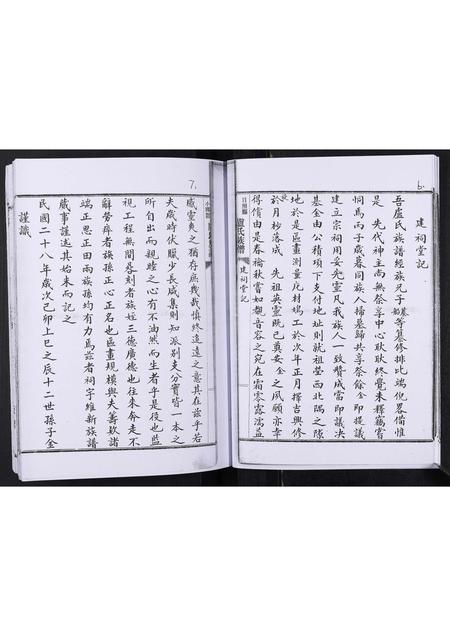 6.
建祠堂記
吾盧氏族譜經族兄子
等篡修排比端倪畧備惟
是先代神主尚無祭享中心耿耿終覺未釋竊嘗
恫焉丙子歲暮同族人掃墓歸共享祭餘余即提議
建立宗祠用妥先靈凡我族人一致贊成當即議决
基金由公積項下支付地址則就祖塋西北隅之隙
地於是區畫測量庀材鳩工於次年正月擇吉興修
於月杪落成先祖英靈既已奠安之夙願亦幸
得償由是春禴秋嘗如覩音容之宛在霜零露濡益
日照縣 盧氏族譜 建祠堂記
7.
感靈爽之猶存庶幾哉慎終追遠之意其在玆乎若
夫歲時伏臘少長咸集則知派别支分實皆一本之
所自出而親睦之心有不油然而生者乎是役也監
視工程無間晷刻者族姪三德廣德也往來奔走不
辭勞瘁者族孫正心正名也區畫規模與夫籌欵諸
端正思正田兩族孫均有力焉玆者祠宇維新族譜
蕆事謹述其始末而記之
民國二十八年歲次己卯上巳之辰十二世孫子金
謹識